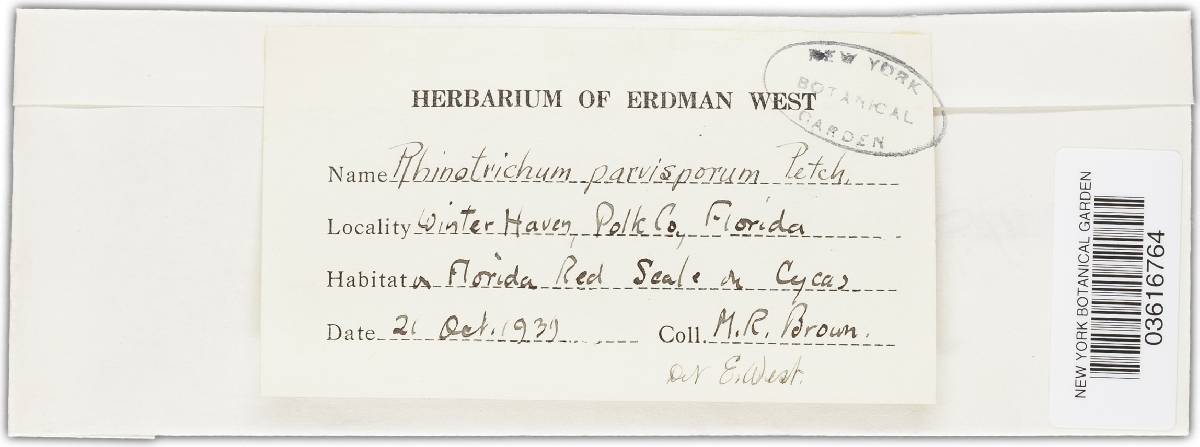 HERBARIUM OF ERDMAN WEST
NEW YORK
BOTANICAL
GARDEN
Name Rhinotrichum parvisporum Petch.
Locality Winter Haven, Polk Co, Florida
Habitat on Florida Red Scale on Cycas
Date 21 Oct. 1939 Coll. M.R. Brown.
Det E. West.
NEW YORK BOTANICAL GARDEN
03616764